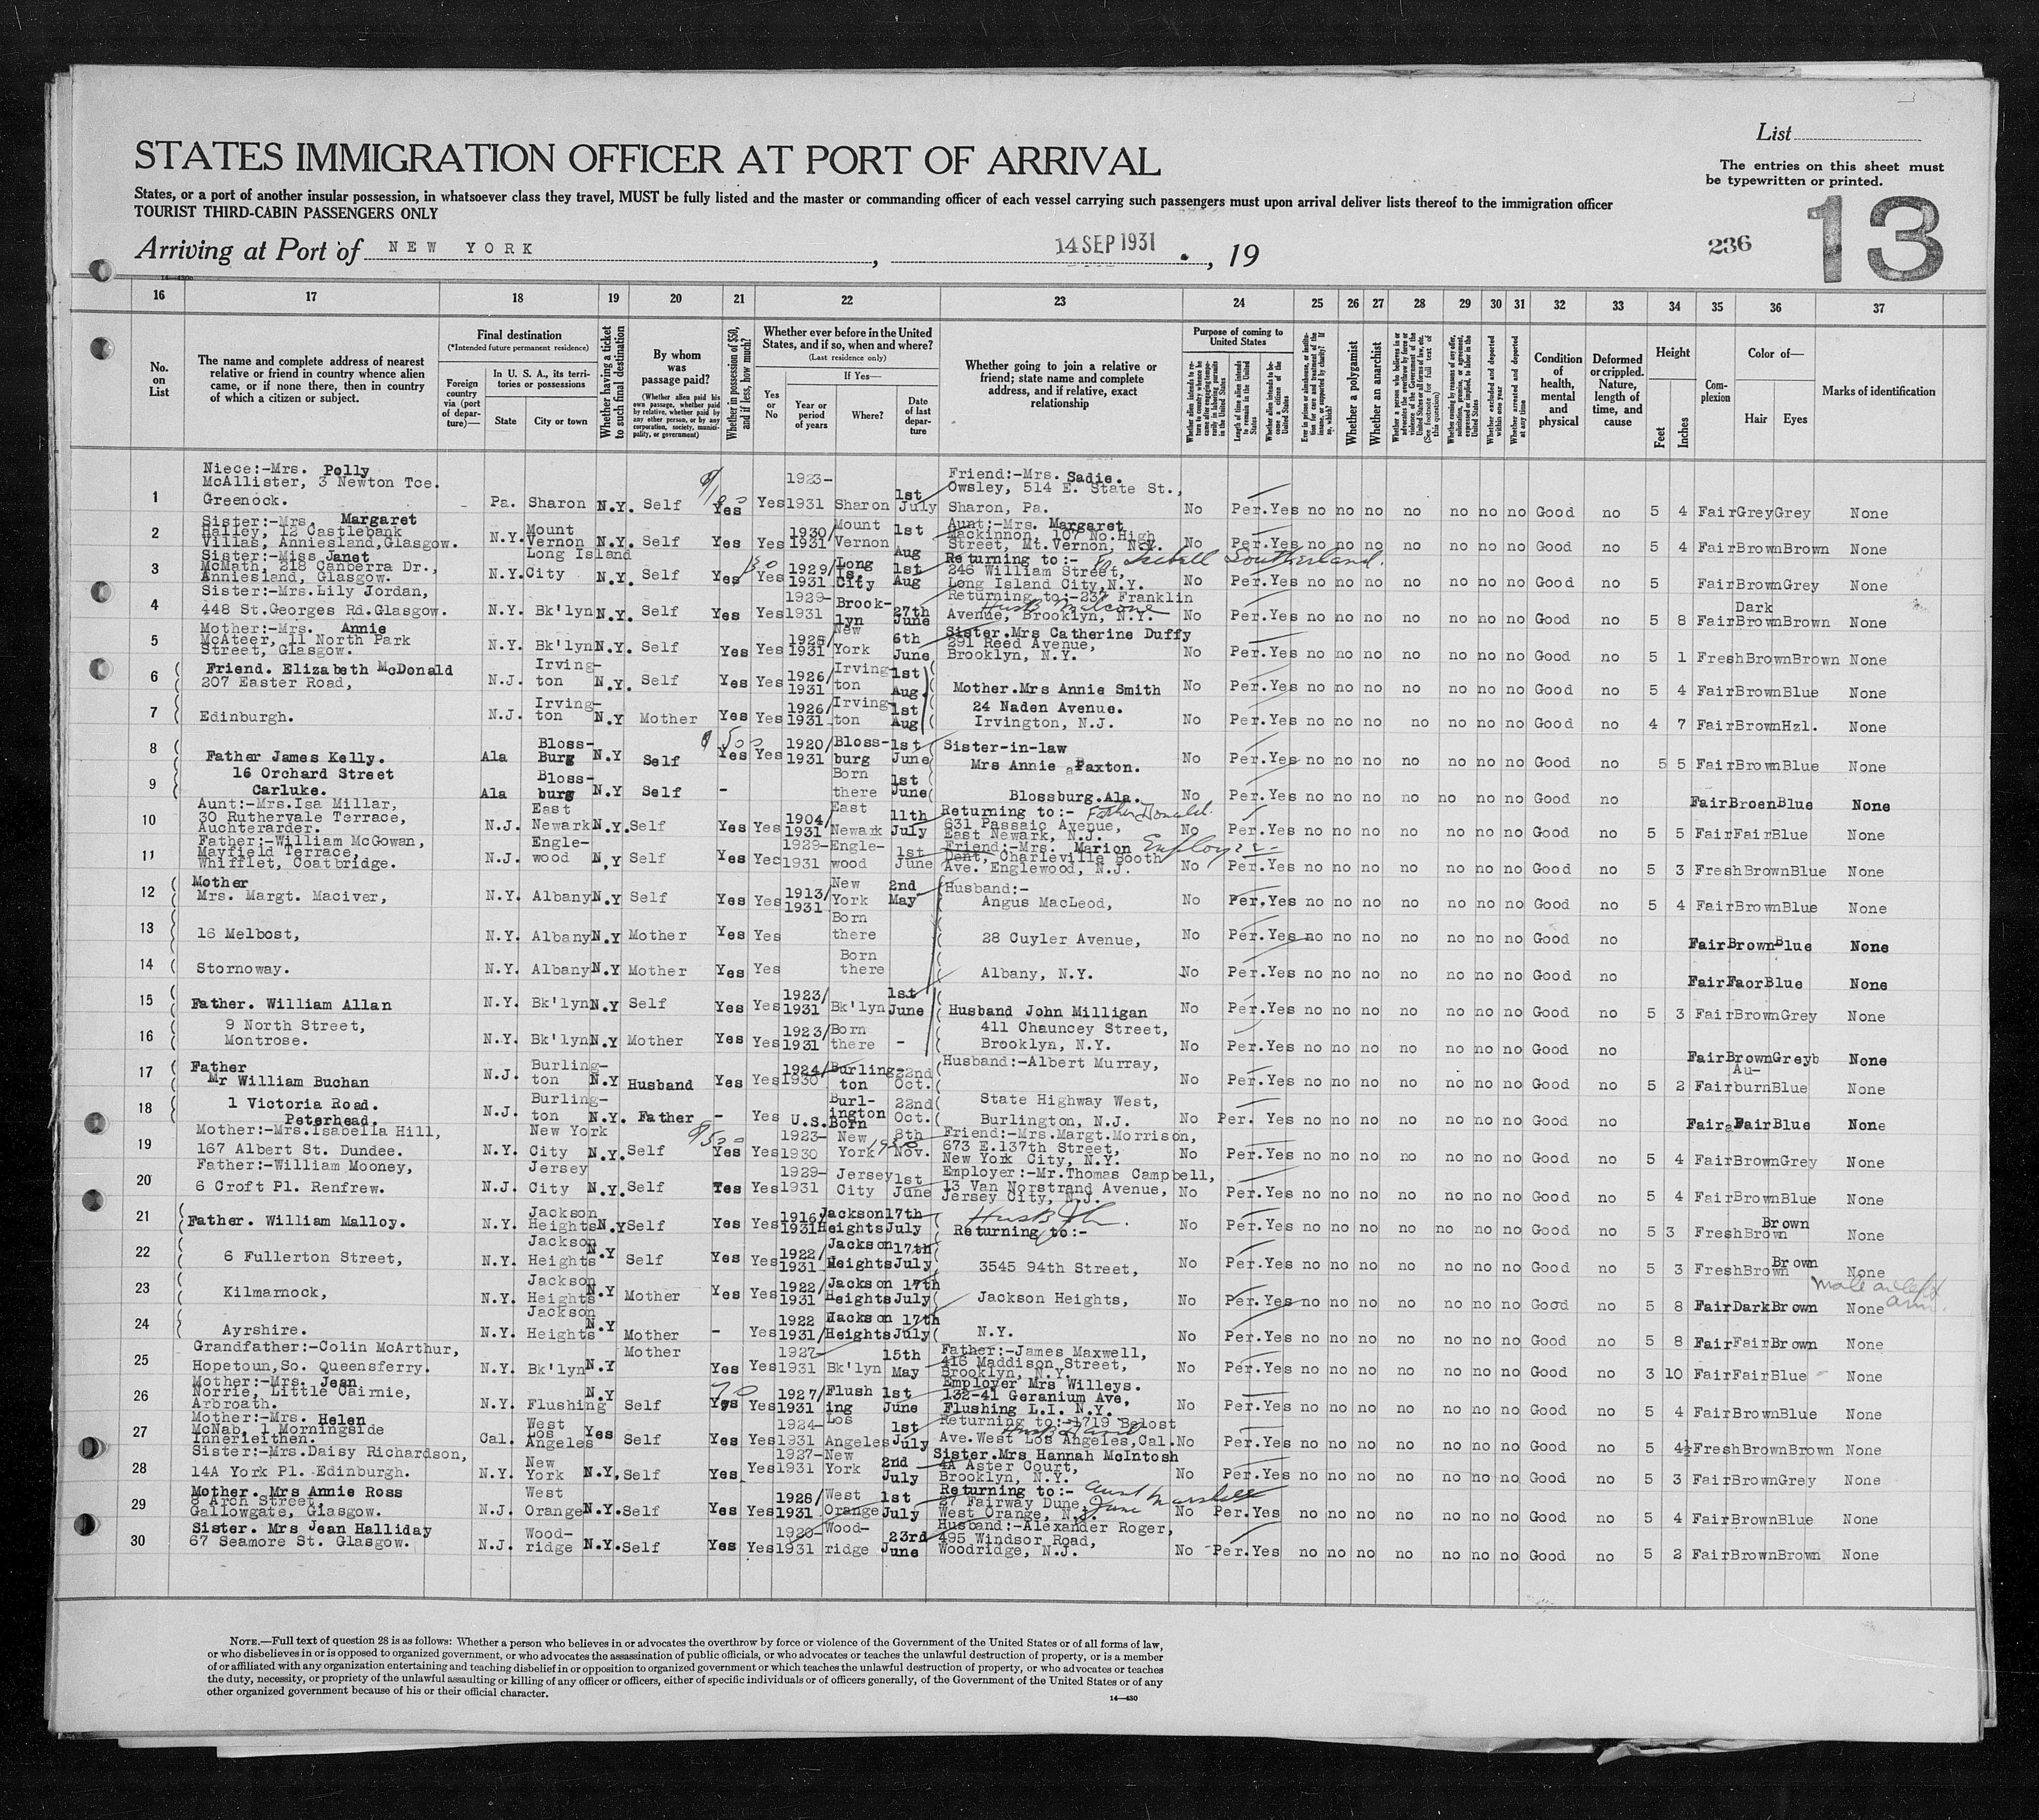 List
STATES IMMIGRATION OFFICER AT PORT OF ARRIVAL
The entries on this sheet must
be typewritten or printed.
States, or a port of another insular possession, in whatsoever class they travel, MUST be fully listed and the master or commanding officer of each vessel carrying such passengers must upon arrival deliver lists thereof to the immigration officer
TOURIST THIRD-CABIN PASSENGERS ONLY
13
236
Arriving at Port of NEW YORK, 14 SEP 1931, 19
16 17 18 19 20 21 22 23 24 25 26 27 28 29 30 31 32 33 34 35 36 37
No. on List
The name and complete address of nearest relative or friend in country whence alien came, or if none there, then in country of which a citizen or subject.
Final destination
(*Intended future permanent residence)
Foreign country via (port of departure)—
In U. S. A., its territories or possessions
State City or town
Whether having a ticket to such final destination
By whom was passage paid?
(Whether alien paid his own passage, whether paid by relative, whether paid by any other person, or by any corporation, society, municipality, or government)
Whether in possession of $50, and if less, how much?
Whether ever before in the United States, and if so, when and where?
(Last residence only)
Yes or No
If Yes—
Year or period of years
Where?
Date of last departure
Whether going to join a relative or friend; state name and complete address, and if relative, exact relationship
Purpose of coming to United States
Whether alien intends to return to country whence he came after engaging temporarily in laboring pursuits in the United States
Length of time alien intends to remain in the United States
Whether alien intends to become a citizen of the United States
Whether a polygamist
Whether an anarchist
Whether excluded and deported within one year
Whether arrested and deported at any time
Condition of health, mental and physical
Deformed or crippled. Nature, length of time, and cause
Height
Feet Inches
Complexion
Color of—
Hair Eyes
Marks of identification
1 Niece:-Mrs. Polly McAllister, 3 Newton Tce. Greenock. Pa. Sharon N.Y. Self Yes Yes 1923-1931 Sharon 1st July Friend:-Mrs. Sadie. Owsley, 514 E. State St., Sharon, Pa. No Per. Yes no no no no no no no Good no 5 4 Fair Grey Grey None
2 Sister:-Mrs. Margaret Halley, 12 Castlebank Villas, Anniesland, Glasgow. N.Y. Mount Vernon N.Y. Self Yes Yes 1930/1931 Mount Vernon 1st Aug Aunt:-Mrs. Margaret Mackinnon, 107 No. High Street, Mt. Vernon, N.Y. No Per. Yes no no no no no no no Good no 5 4 Fair Brown Brown None
3 Sister:-Miss Janet McMath, 218 Canberra Dr., Anniesland, Glasgow. N.Y. Long Island City N.Y. Self Yes Yes 1929/1931 Long Is. City 1st Aug Returning to:- Isobell Southerland. 246 William Street, Long Island City, N.Y. No Per. Yes no no no no no no no Good no 5 Fair Brown Grey None
4 Sister:-Mrs. Lily Jordan, 448 St. Georges Rd. Glasgow. N.Y. Bk'lyn N.Y. Self Yes Yes 1929-1931 Brook-lyn 27th June Returning to:- 231 Franklin Avenue, Brooklyn, N.Y. No Per. Yes no no no no no no no Good no 5 8 Fair Dark Brown Brown None
5 Mother:-Mrs. Annie McAteer, 11 North Park Street, Glasgow. N.Y. Bk'lyn N.Y. Self Yes Yes 1928/1931 New York 6th June Sister. Mrs Catherine Duffy 291 Reed Avenue, Brooklyn, N.Y. No Per. Yes no no no no no no no Good no 5 1 Fresh Brown Brown None
6 Friend. Elizabeth McDonald 207 Easter Road, N.J. Irving-ton N.Y. Self Yes Yes 1926/1931 Irving-ton 1st Aug. Mother. Mrs Annie Smith No Per. Yes no no no no no no no Good no 5 4 Fair Brown Blue None
7 Edinburgh. N.J. Irving-ton N.Y Mother Yes Yes 1926/1931 Irving-ton 1st Aug 24 Naden Avenue. Irvington, N.J. No Per. Yes no no no no no no no Good no 4 7 Fair Brown Hzl. None
8 Father James Kelly. Ala Bloss-Burg N.Y Self $500 Yes Yes 1920/1931 Bloss-burg 1st June Sister-in-law Mrs Annie Paxton. No Per. Yes no no no no no no no Good no 5 5 Fair Brown Blue None
9 16 Orchard Street Carluke. Ala Bloss-burg N.Y Self - Born there 1st June Blossburg. Ala. No Per. Yes no no no no no no no Good no Fair Broen Blue None
10 Aunt:-Mrs. Isa Millar, 30 Ruthervale Terrace, Auchterarder. N.J. East Newark N.Y. Self Yes Yes 1904/1931 East Newark 11th July Returning to:- Father Donald. 631 Passaic Avenue, East Newark, N.J. No Per. Yes no no no no no no no Good no 5 5 Fair Fair Blue None
11 Father:-William McGowan, Mayfield Terrace, Whifflet, Coatbridge. N.J. Engle-wood N,Y Self Yes Yes 1929-1931 Engle-wood 1st June Friend:-Mrs. Marion Employer Dent, Charleville Booth Ave. Englewood, N.J. No Per. Yes no no no no no no no Good no 5 3 Fresh Brown Blue None
12 Mother Mrs. Margt. Maciver, N.Y. Albany N.Y Self Yes Yes 1913/1931 New York 2nd May Husband:- Angus MacLeod, No Per. Yes no no no no no no no Good no 5 4 Fair Brown Blue None
13 16 Melbost, N.Y. Albany N.Y Mother Yes Yes Born there 28 Cuyler Avenue, No Per. Yes no no no no no no no Good no Fair Brown Blue None
14 Stornoway. N.Y. Albany N.Y Mother Yes Yes Born there Albany, N.Y. No Per. Yes no no no no no no no Good no Fair Faor Blue None
15 Father. William Allan N.Y. Bk'lyn N.Y Self Yes Yes 1923/1931 Bk'lyn 1st June Husband John Milligan No Per. Yes no no no no no no no Good no 5 3 Fair Brown Grey None
16 9 North Street, Montrose. N.Y. Bk'lyn N.Y Mother Yes Yes 1923/1931 Born there - 411 Chauncey Street, Brooklyn, N.Y. No Per. Yes no no no no no no no Good no Fair Brown Greyb None
17 Father Mr William Buchan N.J. Burling-ton N.Y Husband Yes Yes 1924/1930 Burling-ton 22nd Oct. Husband:-Albert Murray, No Per. Yes no no no no no no no Good no 5 2 Fair Au-burn Blue None
18 1 Victoria Road. Peterhead. N.J. Burling-ton N.Y. Father - Yes U.S. Burl-ington Born 22nd Oct. State Highway West, Burlington, N.J. No Per. Yes no no no no no no no Good no Fair Fair Blue None
19 Mother:-Mrs. Isabella Hill, 167 Albert St. Dundee. N.Y. New York City N.Y. Self $500 Yes Yes 1923-1930 New York 1930 8th Nov. Friend:-Mrs. Margt. Morrison, 673 E. 137th Street, New York City, N.Y. No Per. Yes no no no no no no no Good no 5 4 Fair Brown Grey None
20 Father:-William Mooney, 6 Croft Pl. Renfrew. N.J. Jersey City N.Y. Self Yes Yes 1929-1931 Jersey City 1st June Employer:-Mr. Thomas Campbell, 13 Van Norstrand Avenue, Jersey City, N.J. No Per. Yes no no no no no no no Good no 5 4 Fair Brown Blue None
21 Father. William Malloy. N.Y. Jackson Heights N.Y Self Yes Yes 1916/1931 Jackson Heights 17th July Husb John. Returning to:- No Per. Yes no no no no no no no Good no 5 3 Fresh Brown Brown None
22 6 Fullerton Street, N.Y. Jackson Heights N.Y Self Yes Yes 1922/1931 Jackson Heights 17th July 3545 94th Street, No Per. Yes no no no no no no no Good no 5 3 Fresh Brown Brown None
23 Kilmarnock, N.Y. Jackson Heights N.Y Mother Yes Yes 1922/1931 Jackson Heights 17th July Jackson Heights, No Per. Yes no no no no no no no Good no 5 8 Fair Dark Brown None Mole on left arm.
24 Ayrshire. N.Y. Jackson Heights N.Y Mother - Yes 1922 1931/ Hackson Heights 17th July N.Y. No Per. Yes no no no no no no no Good no 5 8 Fair Fair Brown None
25 Grandfather:-Colin McArthur, Hopetoun, So. Queensferry. N.Y. Bk'lyn N.Y Mother Yes Yes 1927-1931 Bk'lyn 15th May Father:-James Maxwell, 416 Maddison Street, Brooklyn, N.Y. No Per. Yes no no no no no no no Good no 3 10 Fair Fair Blue None
26 Mother:-Mrs. Jean Norrie, Little Cairnie, Arbroath. N.Y. Flushing N.Y Self Yes Yes 1927/1931 Flush ing 1st June Employer Mrs Willeys. 132-41 Geranium Ave, Flushing L.I. N.Y. No Per. Yes no no no no no no no Good no 5 4 Fair Brown Blue None
27 Mother:-Mrs. Helen McNab, 1 Morningside Innerleithen. Cal. West Los Angeles Yes Self Yes Yes 1924-1931 Los Angeles 1st July Returning to:-1719 Belost Ave. West Los Angeles, Cal. No Per. Yes no no no no no no no Good no 5 4½ Fresh Brown Brown None
28 Sister:-Mrs. Daisy Richardson, 14A York Pl. Edinburgh. N.Y. New York N.Y, Self Yes Yes 1927-1931 New York 2nd July Sister. Mrs Hannah McIntosh 4A Aster Court, Brooklyn, N.Y. No Per. Yes no no no no no no no Good no 5 3 Fair Brown Grey None
29 Mother. Mrs Annie Ross 8 Arch Street, Gallowgate, Glasgow. N.J. West Orange N.Y. Self Yes Yes 1928/1931 West Orange 1st July Returning to:- Aunt 27 Fairway Dune, West Orange, N.J. No Per. Yes no no no no no no no Good no 5 4 Fair Brown Blue None
30 Sister. Mrs Jean Halliday 67 Seamore St. Glasgow. N.J. Wood-ridge N.Y. Self Yes Yes 1920-1931 Wood-ridge 23rd June Husband:-Alexander Roger, 495 Windsor Road, Woodridge, N.J. No Per. Yes no no no no no no no Good no 5 2 Fair Brown Brown None
NOTE.—Full text of question 28 is as follows: Whether a person who believes in or advocates the overthrow by force or violence of the Government of the United States or of all forms of law,
or who disbelieves in or is opposed to organized government, or who advocates the assassination of public officials, or who advocates or teaches the unlawful destruction of property, or is a member
of or affiliated with any organization entertaining and teaching disbelief in or opposition to organized government or which teaches the unlawful destruction of property, or who advocates or teaches
the duty, necessity, or propriety of the unlawful assaulting or killing of any officer or officers, either of specific individuals or of officers generally, of the Government of the United States or of any
other organized government because of his or their official character.
14—430